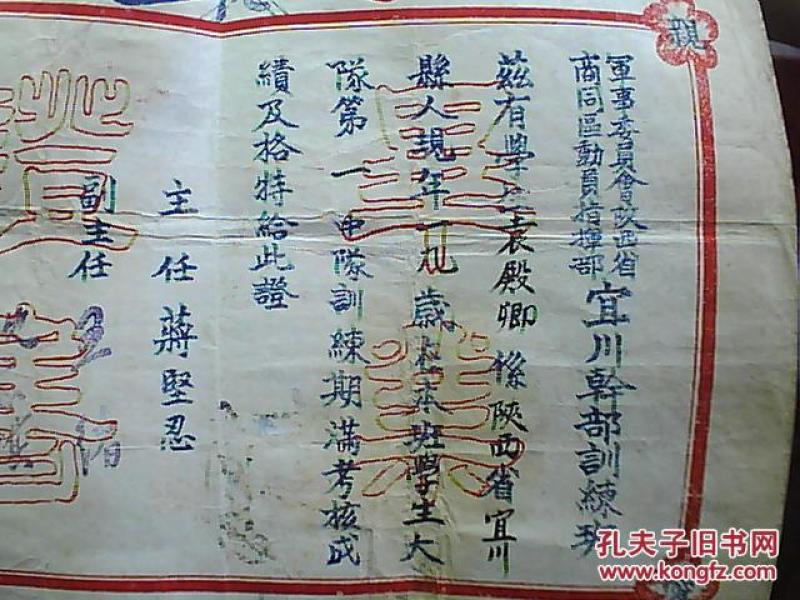 親
軍事委員會陝西省
商同區動員指揮部
宜川幹部訓練班
茲有學生袁殿卿係陝西省宜川
縣人現年一九歲在本班學生大
隊第一中隊訓練期滿考核成
績及格特給此證
主任蔣堅忍
副主任
畢業
證書
孔夫子旧书网
www.kongfz.com